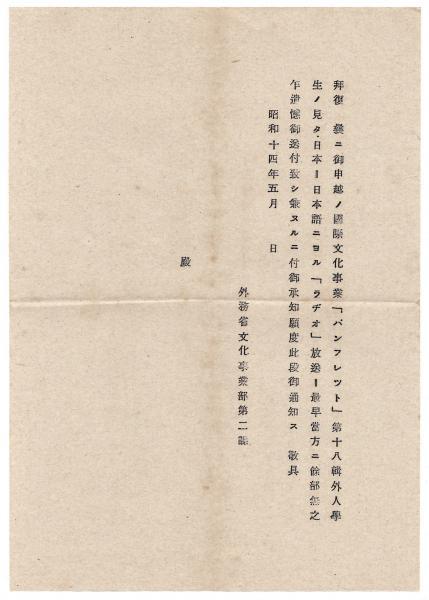 拜復 曩ニ御申越ノ國際文化事業「パンフレツト」第十八輯外人學
生ノ見タ日本―日本語ニヨル「ラヂオ」放送―最早當方ニ餘部無之
乍遺憾御送付致シ兼ヌルニ付御承知願度此段御通知ス 敬具
昭和十四年五月 日
外務省文化事業部第二課
殿